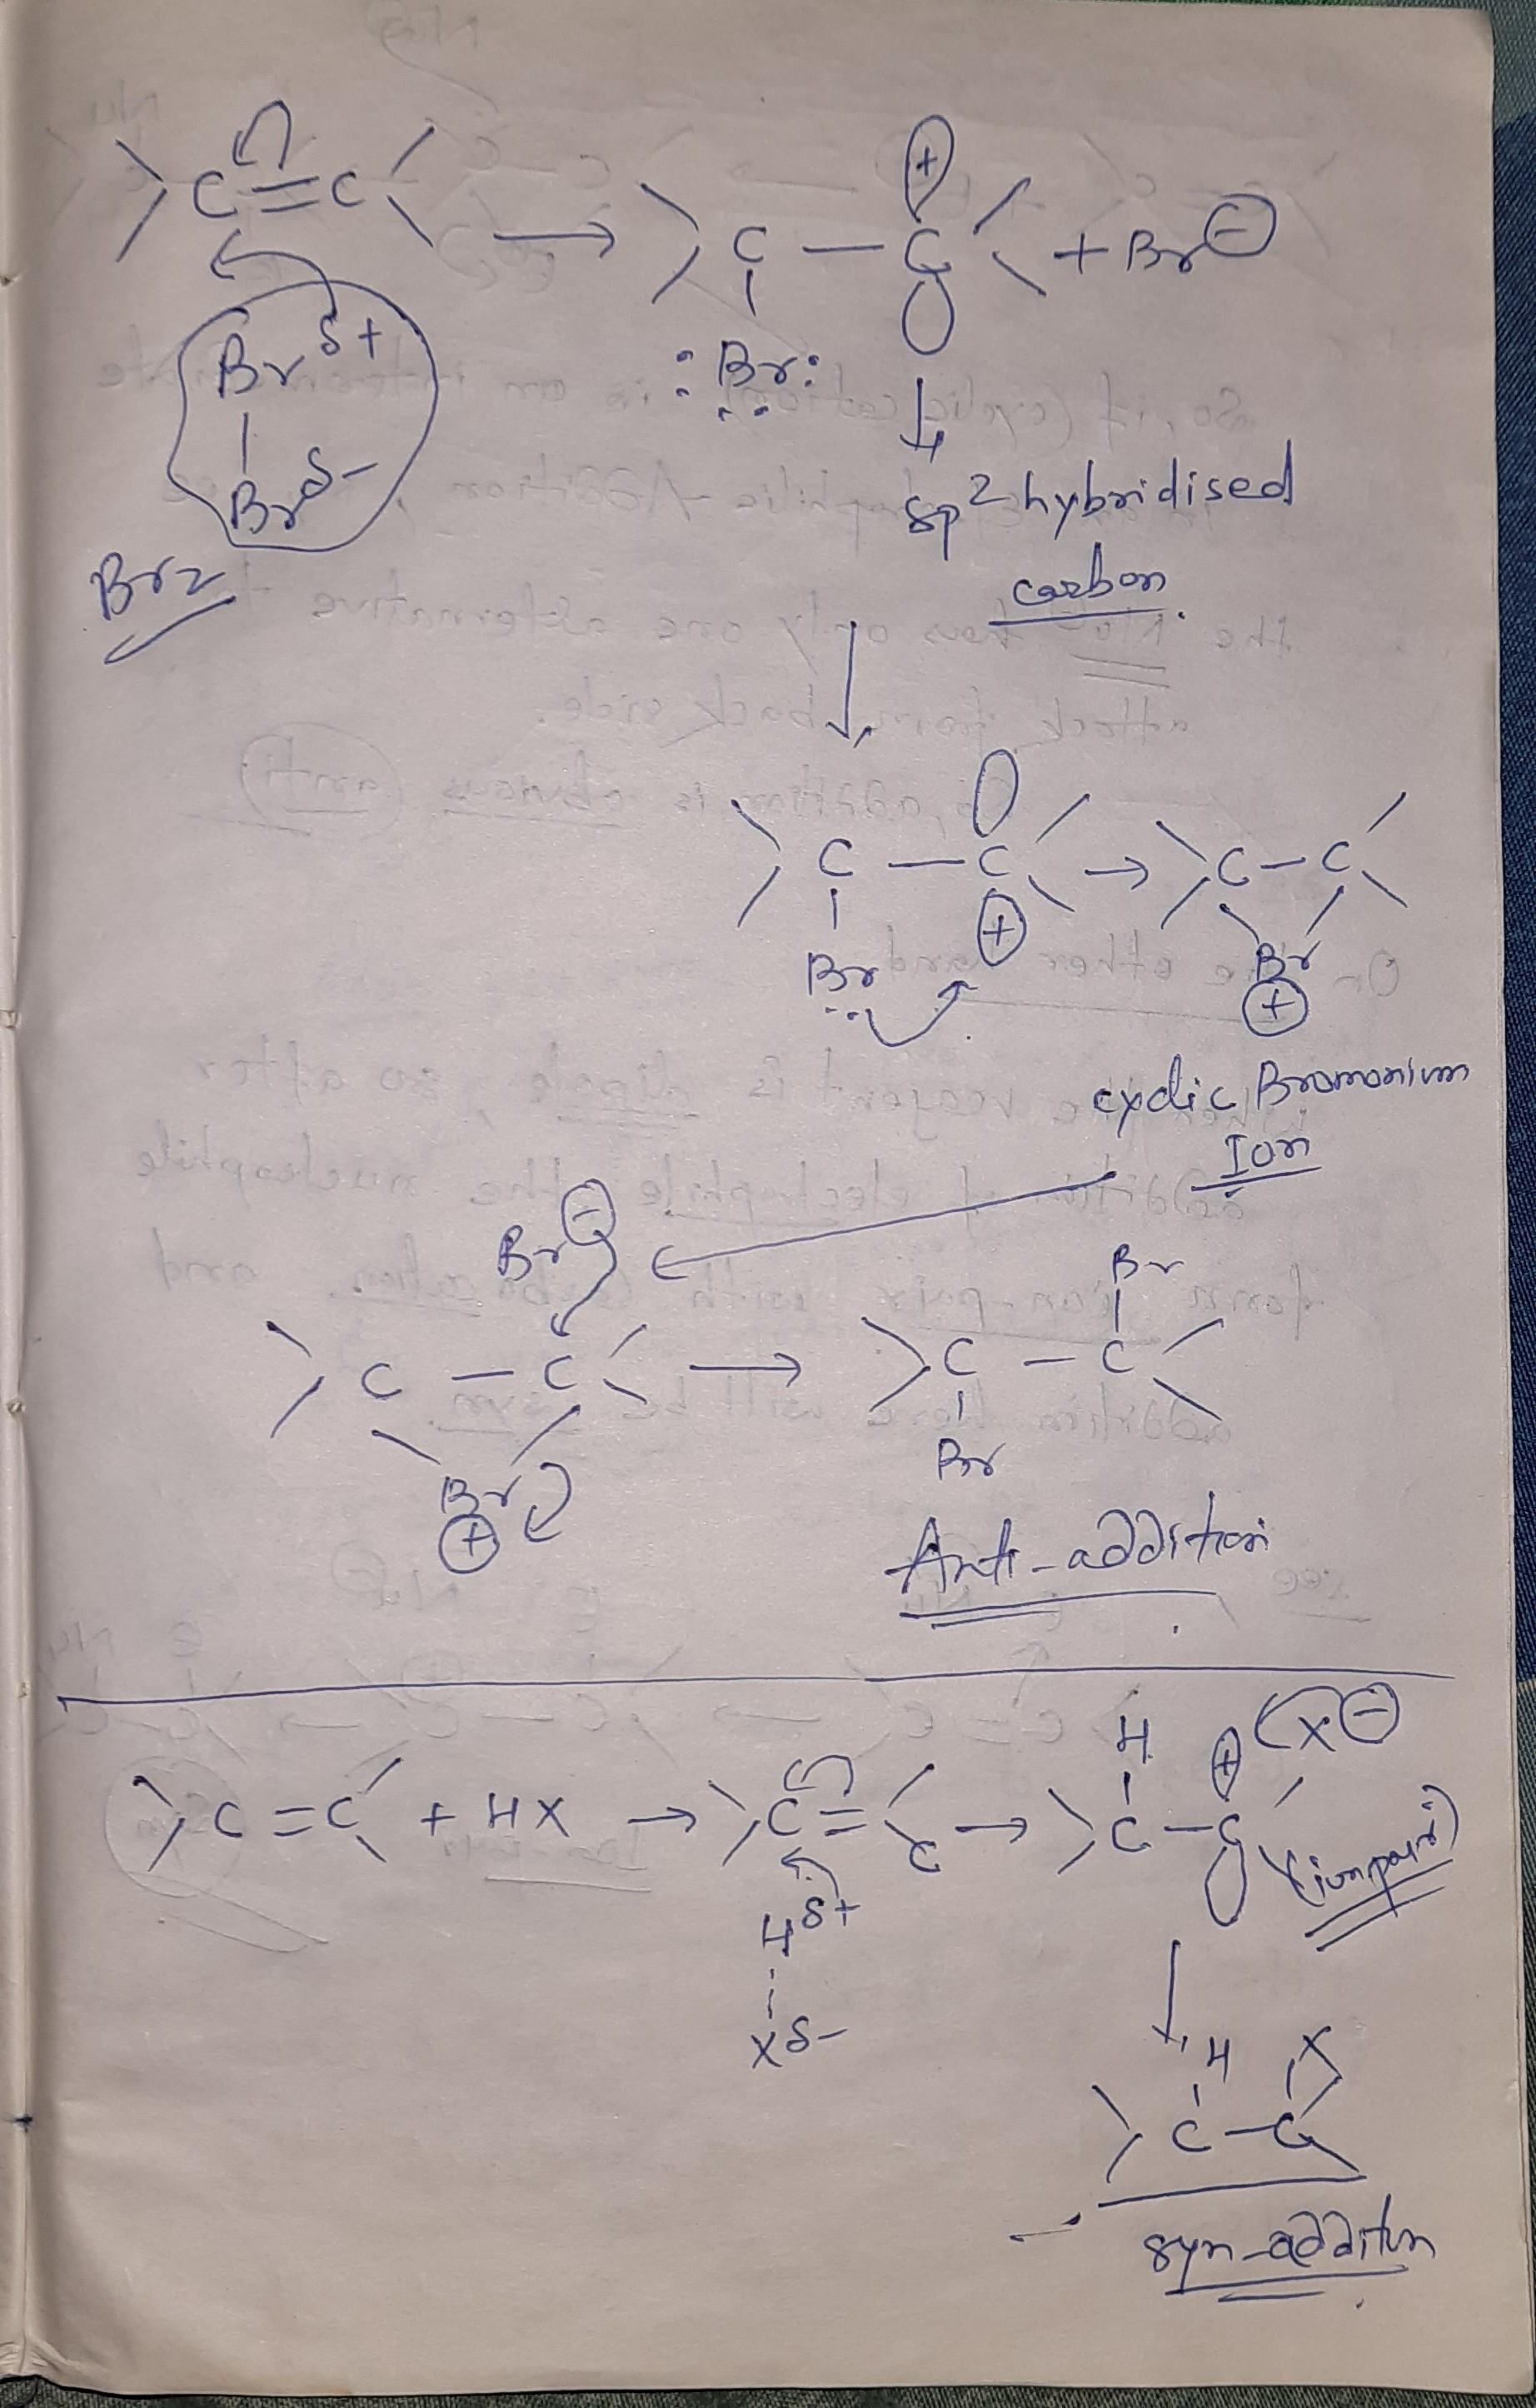 C=C → C — C + Br⊖
⊕
Br δ+
Br δ-
:Br:
Br2
sp2 hybridised
carbon.
C — C → C – C
Br ⊕ Br
⊕
cyclic Bromonium
Ion
Br⊖
Br
C — C → C – C
Br Br
⊕
Anti-addition
H ⊕ X⊖
C=C + HX → C=C → C–C
C
(ion pair)
H δ+
X δ-
H X
C–C
syn-additon